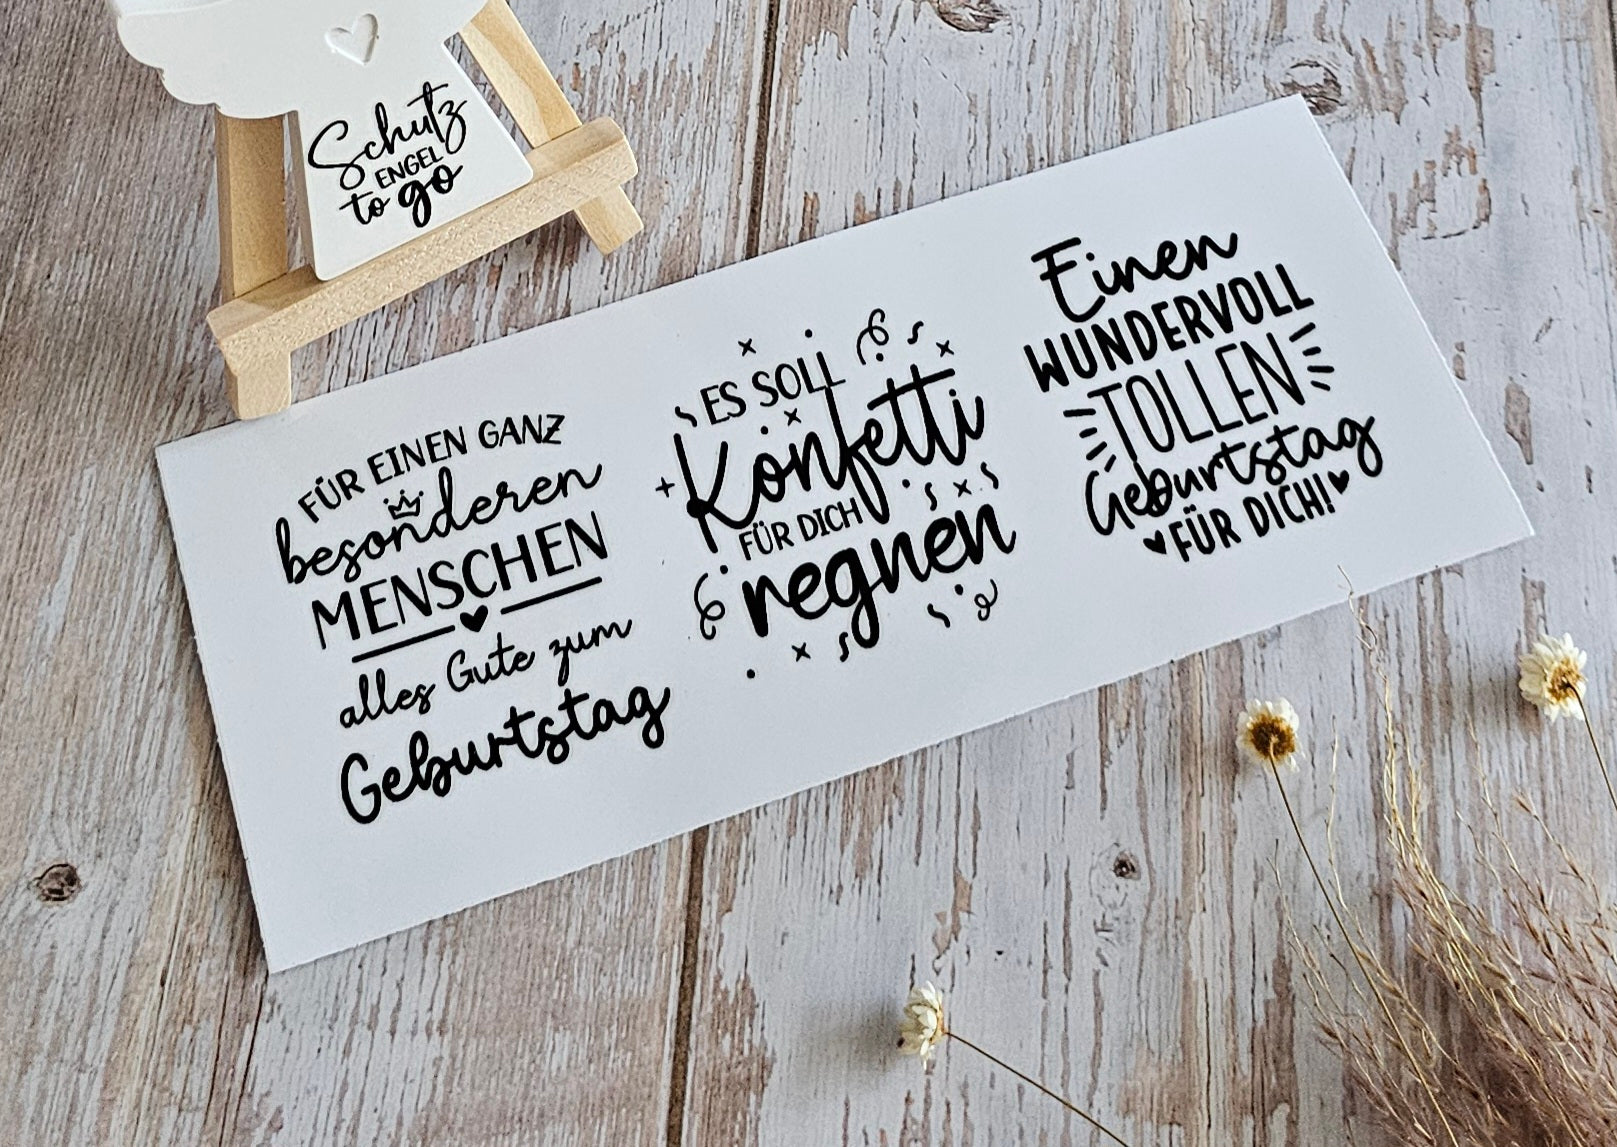 Schutz
ENGEL
to go
FÜR EINEN GANZ
besonderen
MENSCHEN
alles Gute zum
Geburtstag
ES SOLL
Konfetti
FÜR DICH
regnen
Einen
WUNDERVOLL
TOLLEN
Geburtstag
FÜR DICH!